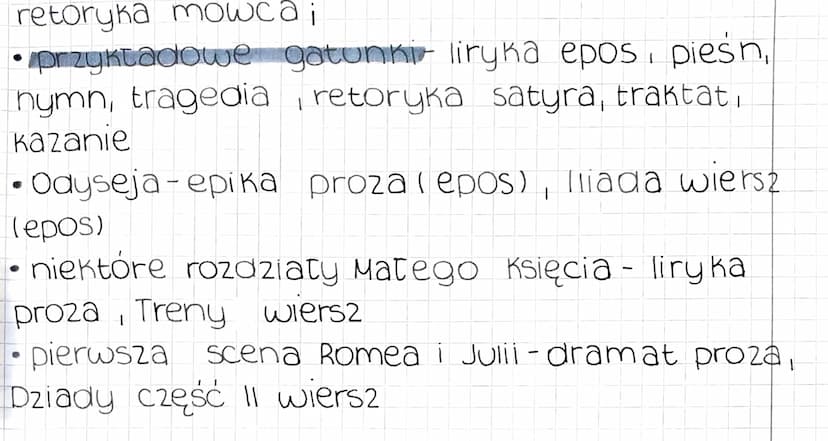 retoryka mówca i
• przykładowe gatunki - liryka epos, pieśń,
hymn, tragedia, retoryka satyra, traktat,
kazanie
• Odyseja - epika proza (epos), Iliada wiersz
(epos)
• niektóre rozdziały Małego Księcia - liryka
proza, Treny wiersz
• pierwsza scena Romea i Julii - dramat proza,
Dziady część II wiersz